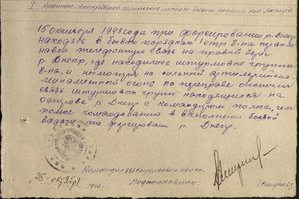 I. Краткое, конкретное изложение личного боевого подвига или заслуг
15 октября 1943 года при форсировании р. Днепр
находясь в боевых порядках
навел телефонную связь на правый берег
р. Днепр, где находились штурмовые группы
б-на, и несмотря на сильный артиллерийско
минометный огонь по переправе обеспечил
связь штурмовых групп находящихся на
р. Днепр с командиром полка, чем
помог командованию в выполнении боевой
задачи по форсированию р. Днепр.
Командир стрелкового полка
Подполковник
25 октября